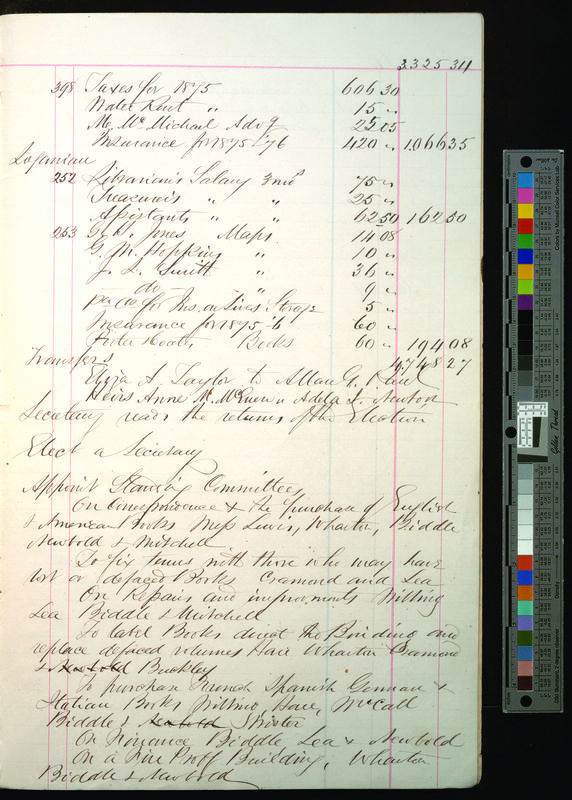 3325 34
398 Taxes for 1875 606 30
Water Rent " 15 "
Mc Michael Advg 25 05
Insurance for 1875-76 420 " 1066 35
Loganian
252 Librarian's Salary 3 mos 75 "
Treasurer's " " 25 "
Assistants " " 62 50 162 50
253 G. W. Jones Maps 14 08
G. M. Hopkins " 10 "
J. L. Smith " 36 "
do " 9 "
for Ins. on Lives 5 "
Insurance for 1875-6 60 "
Porter & Coates Books 60 " 194 08
Transfers 4748 27
Eliza A. Taylor to Allan G.
Heirs Anne M. to Adela F. Newton
Secretary reads the returns of the Election
Elect a Secretary
Appoint Standing Committees
On Correspondence & the purchase of English
& American Books Messrs Lewis, Wharton, Biddle
Newbold & Mitchell
To fix terms with those who may have
lost or defaced Books Cramond and Lea
On Repairs and improvements Willing
Lea Biddle & Mitchell
To label Books direct the Binding and
replace defaced volumes Hare Wharton Cramond
& Newbold Buckley
To purchase French Spanish German &
Italian Books Willing, Hare, McCall
Biddle & Newbold
On Finance Biddle Lea & Newbold
On a Fire Proof Building, Wharton
Biddle & Newbold